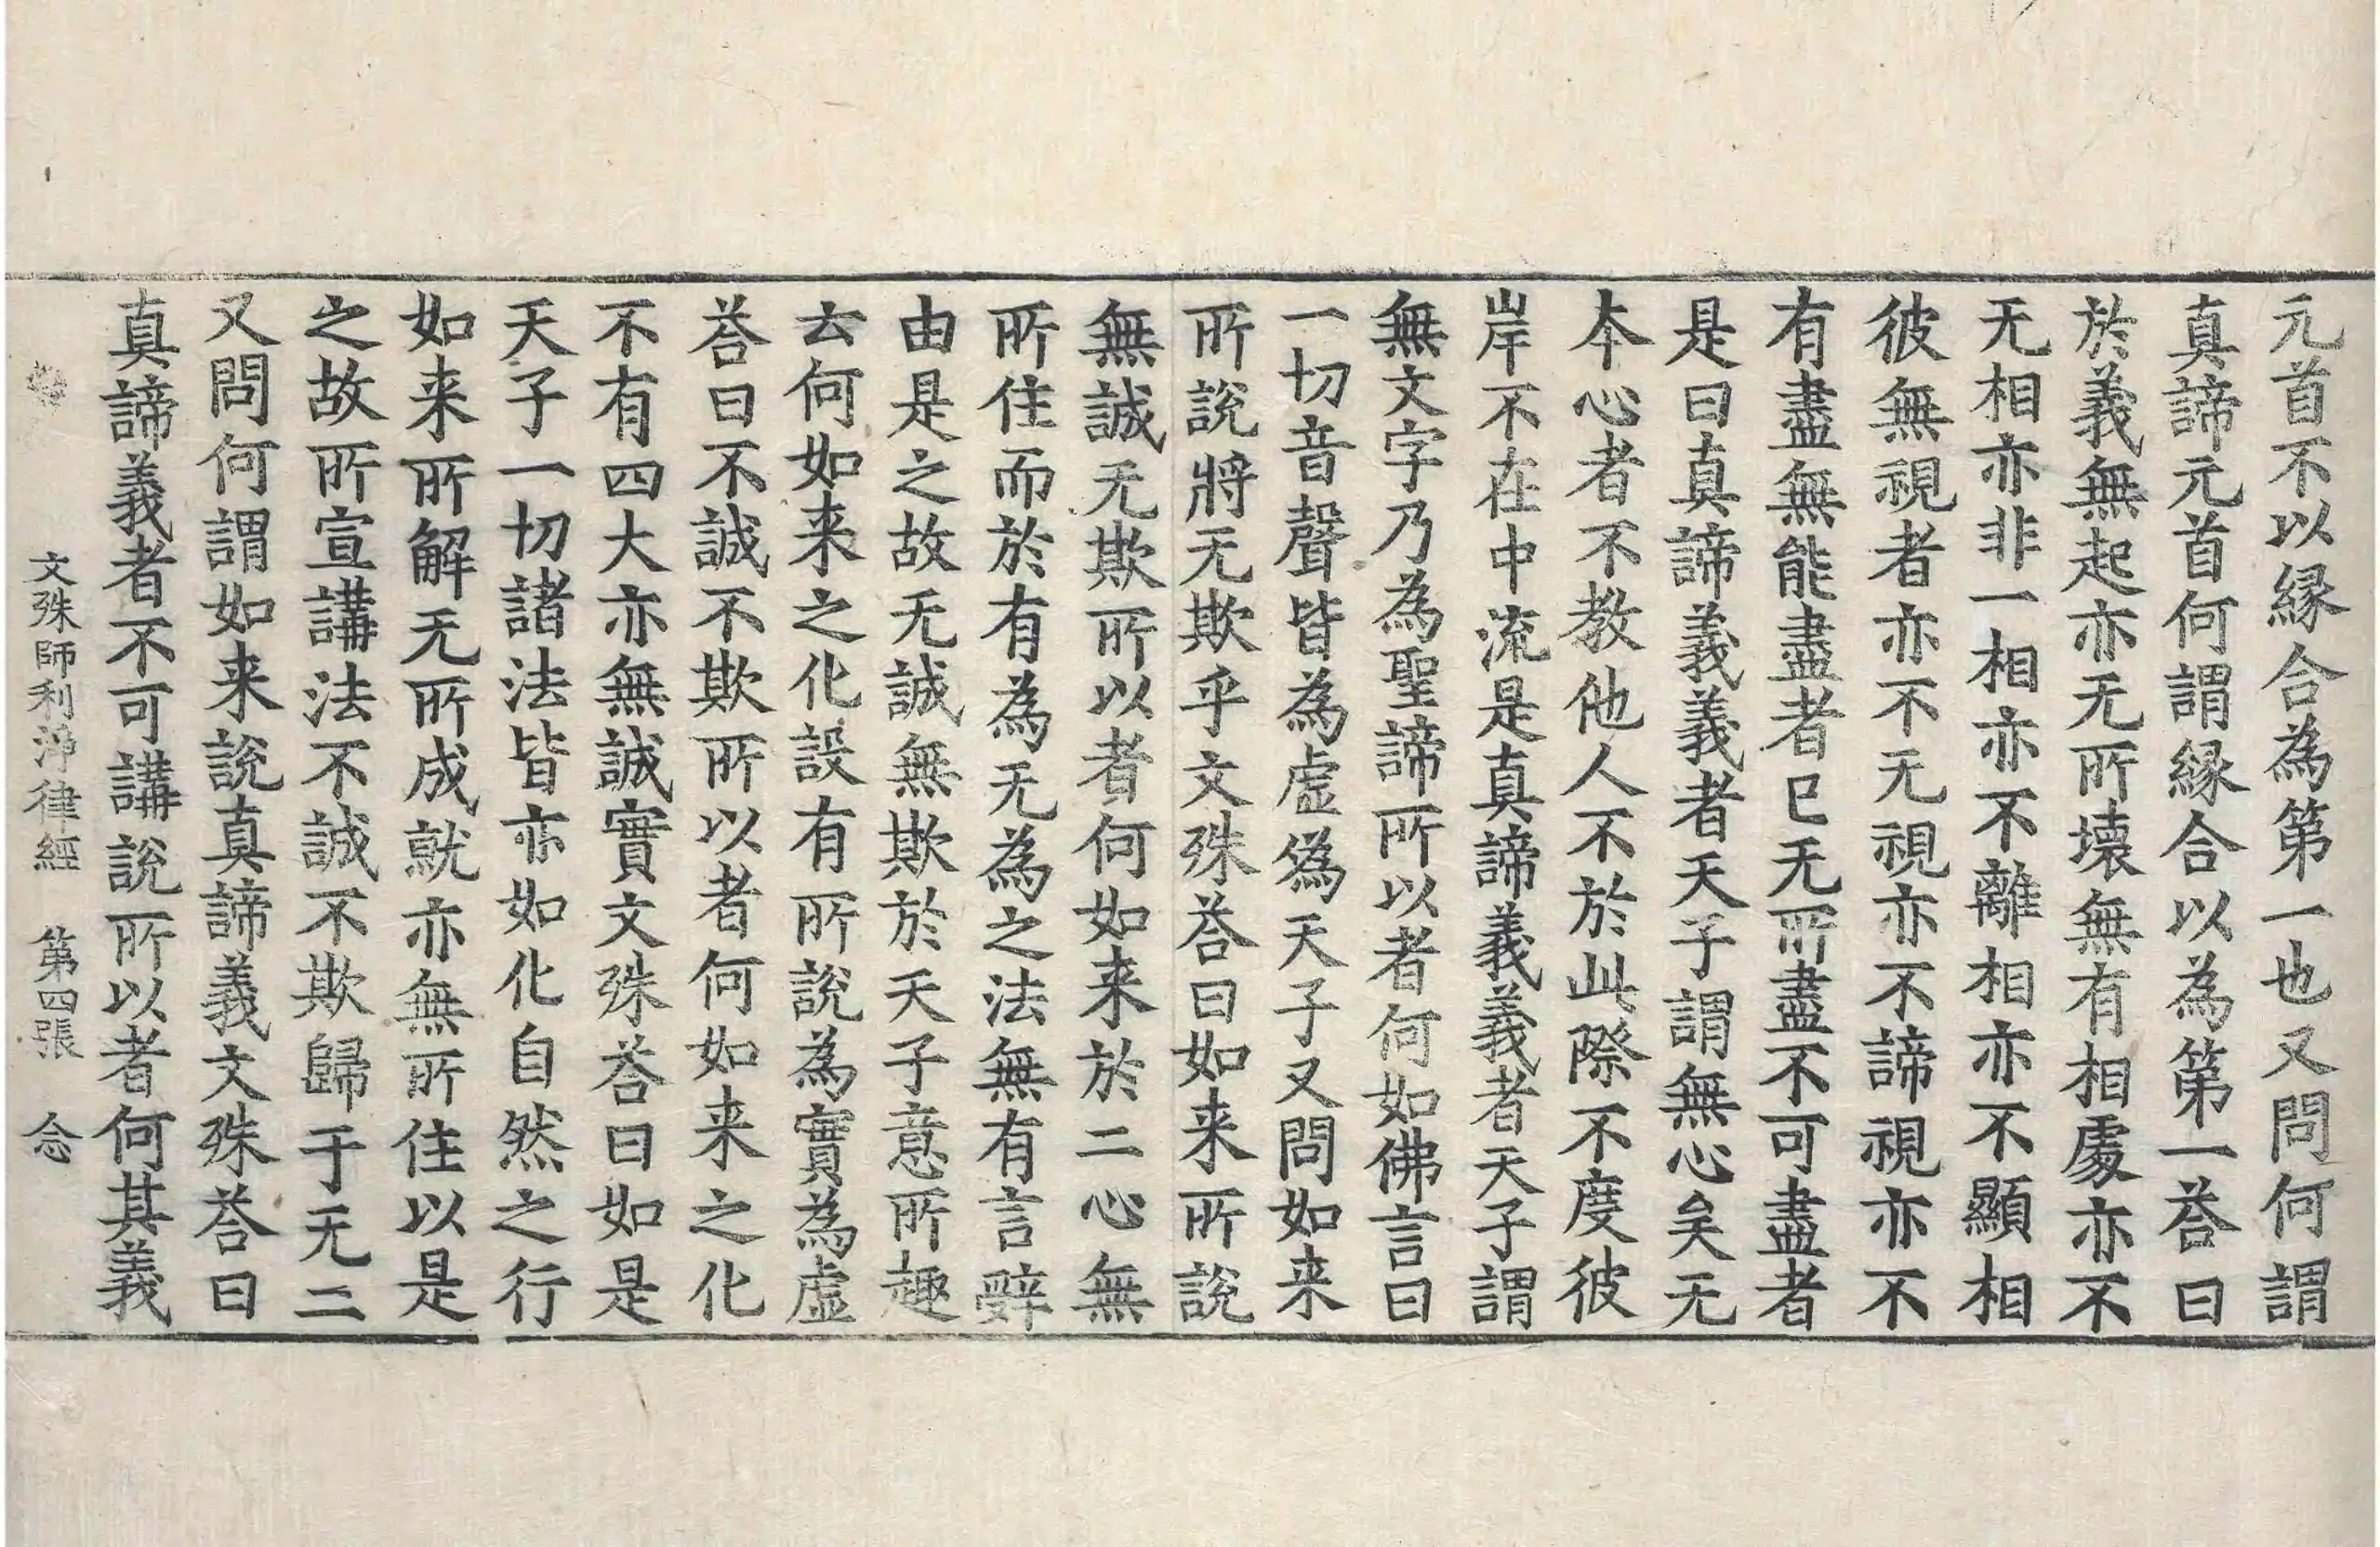 元首不以縁合為第一也又問何謂
真諦元首何謂縁合以為第一荅曰
於義無起亦无所壊無有相處亦不
无相亦非一相亦不離相亦不顯相
彼無視者亦不无視亦不諦視亦不
有盡無能盡者已无所盡不可盡者
是曰真諦義義者天子謂無心矣无
本心者不教他人不於此際不度彼
岸不在中流是真諦義義者天子謂
無文字乃為聖諦所以者何如佛言曰
一切音聲皆為虛偽天子又問如来
所說將无欺乎文殊荅曰如来所說
無誠无欺所以者何如来於二心無
所住而於有為无為之法無有言辤
由是之故无誠無欺於天子意所趣
云何如来之化設有所說為實為虛
荅曰不誠不欺所以者何如来之化
不有四大亦無誠實文殊荅曰如是
天子一切諸法皆亦如化自然之行
如来所解无所成就亦無所住以是
之故所宣講法不誠不欺歸于无二
又問何謂如来說真諦義文殊荅曰
真諦義者不可講說所以者何其義
文殊師利淨律經 第四張 念